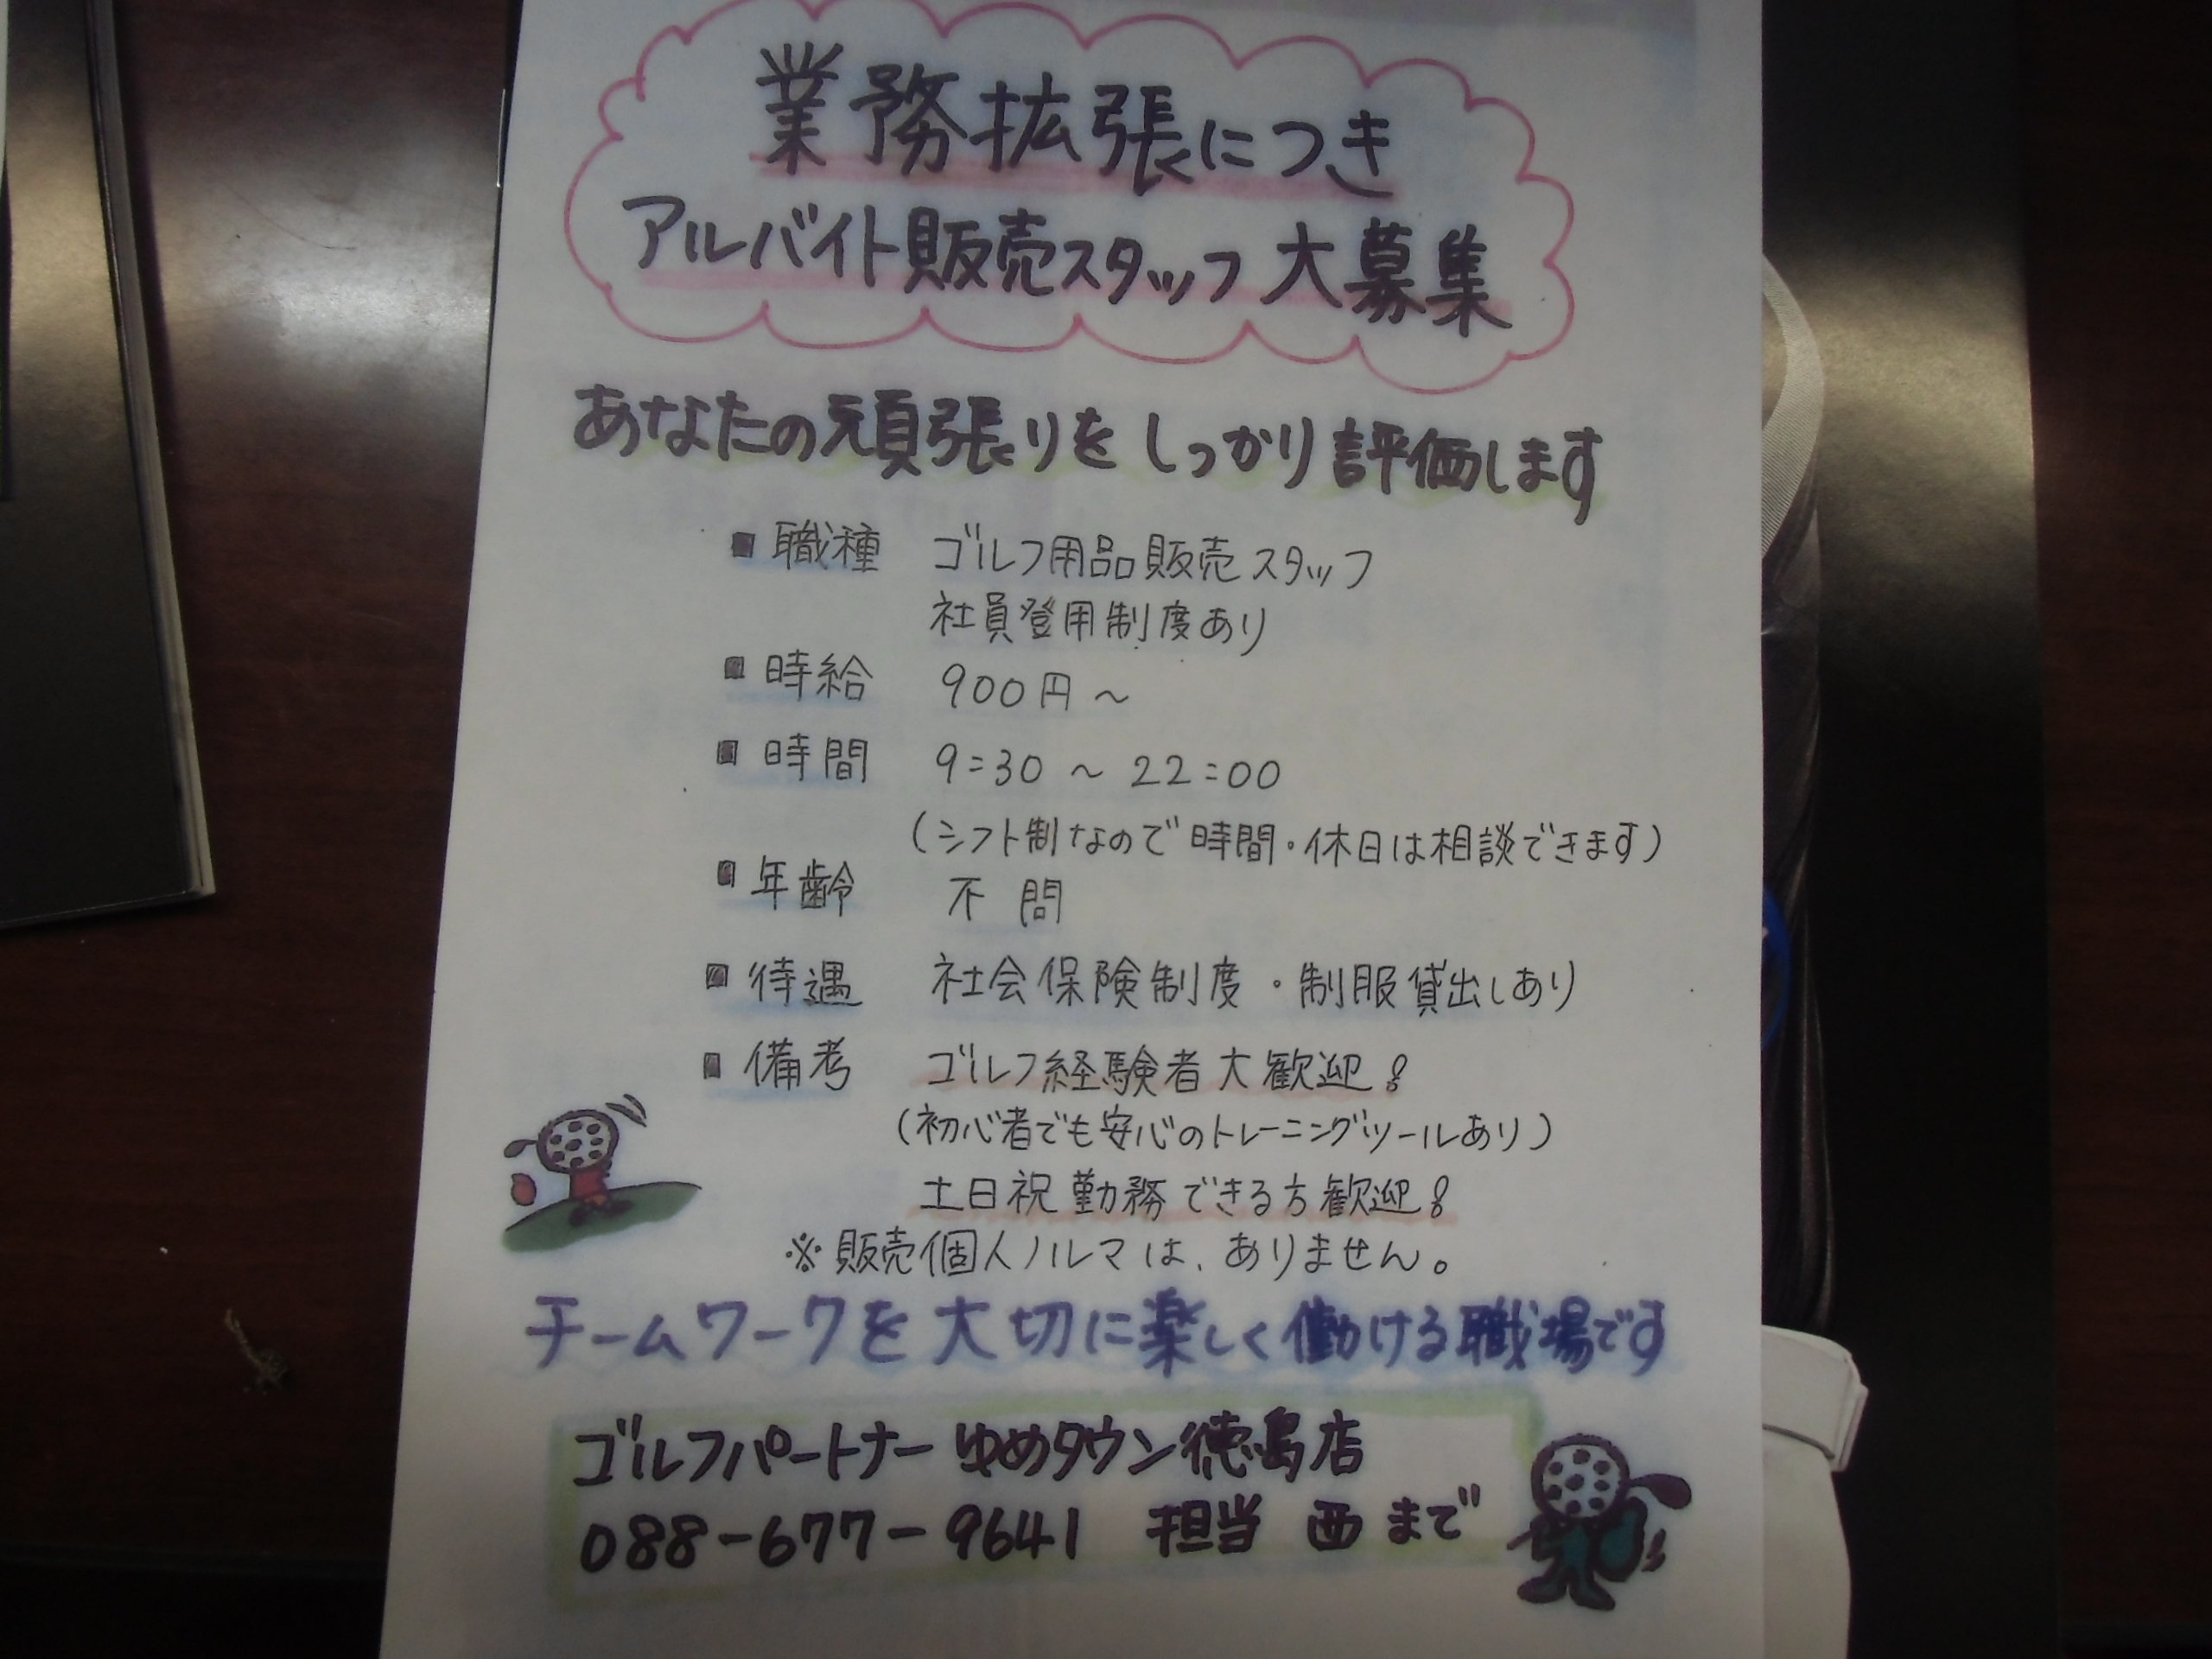 業務拡張につき
アルバイト販売スタッフ 大募集
あなたの頑張りを しっかり評価します
■ 職種 ゴルフ用品販売スタッフ
社員登用制度あり
■ 時給 900円～
■ 時間 9:30 ～ 22:00
(シフト制なので時間・休日は相談できます)
■ 年齢 不問
■ 待遇 社会保険制度・制服貸出しあり
■ 備考 ゴルフ経験者大歓迎!
(初心者でも安心のトレーニングツールあり)
土日祝勤務できる方歓迎!
※販売個人ノルマは、ありません。
チームワークを大切に楽しく働ける職場です
ゴルフパートナー ゆめタウン徳島店
088-677-9641 担当 西 まで